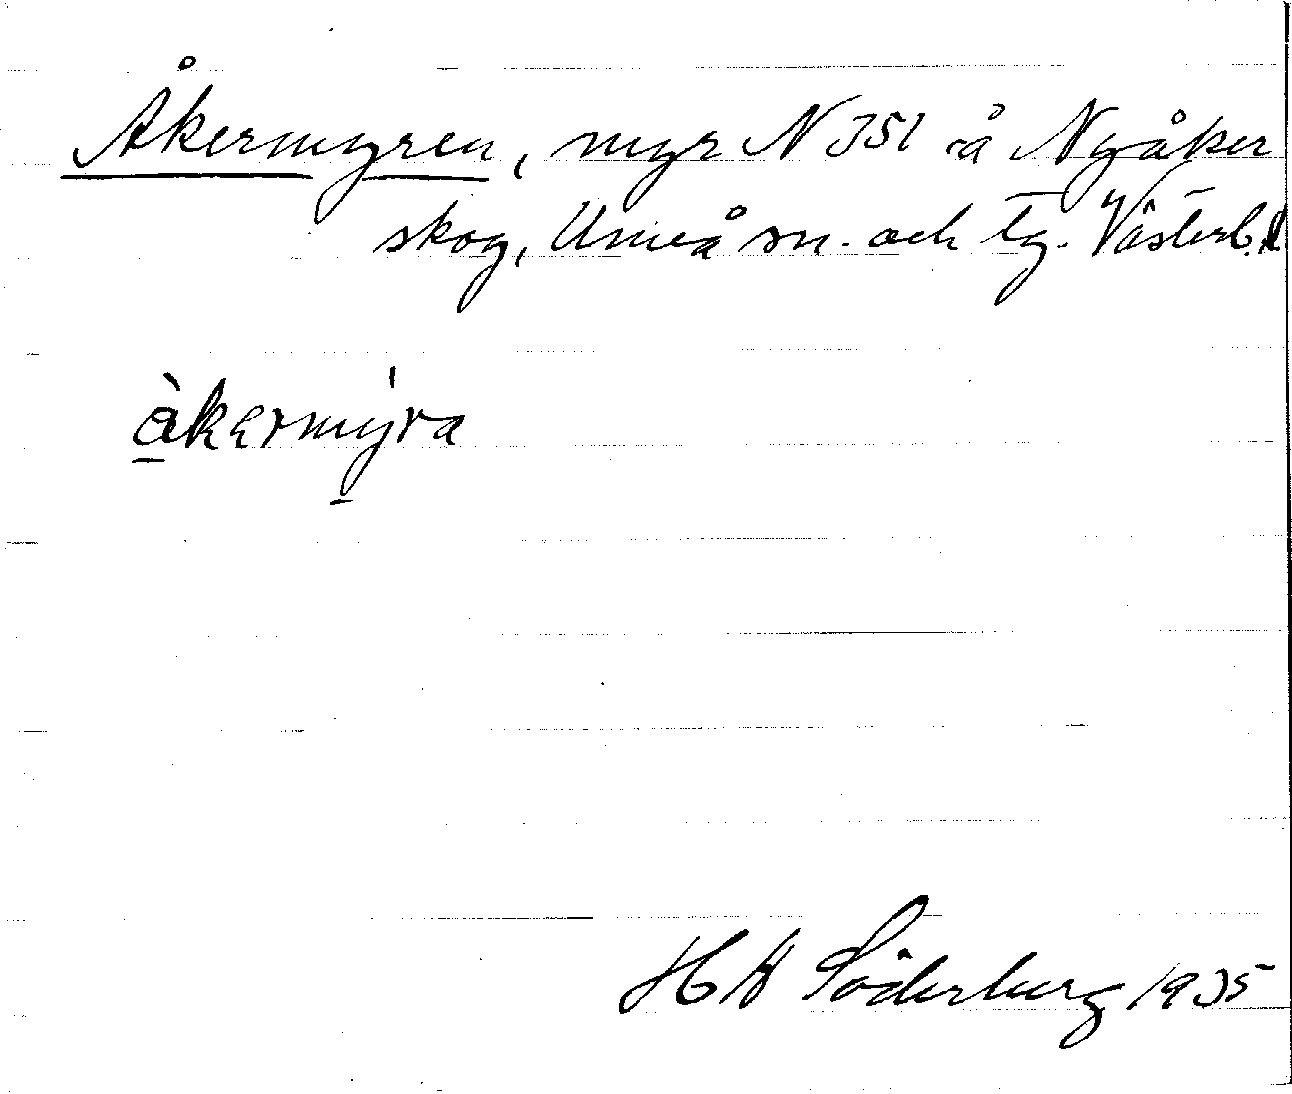 Åkermyren, myr N 351 å Nyåker
skog, Umeå sn. och tg. Västerb. l
åkermyra
H A Söderberg 1935